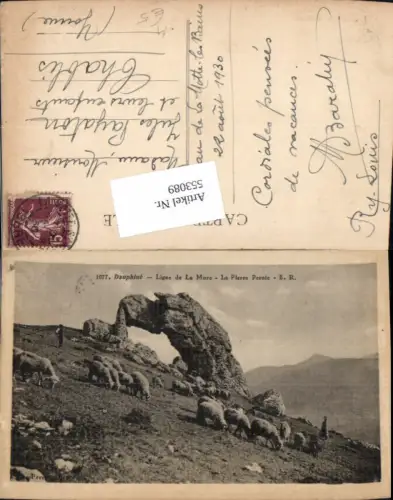 ... au de la Motte-les-Bains
22 août 1930
Cordiales pensées
de vacances.
Madame Monsieur
Jules Payaton
et leurs enfants
Chablis
(Yonne)
CARTE
LE
Artikel Nr.
553089
1077. Dauphiné - Ligne de La Mure - La Pierre Percée - E. R.